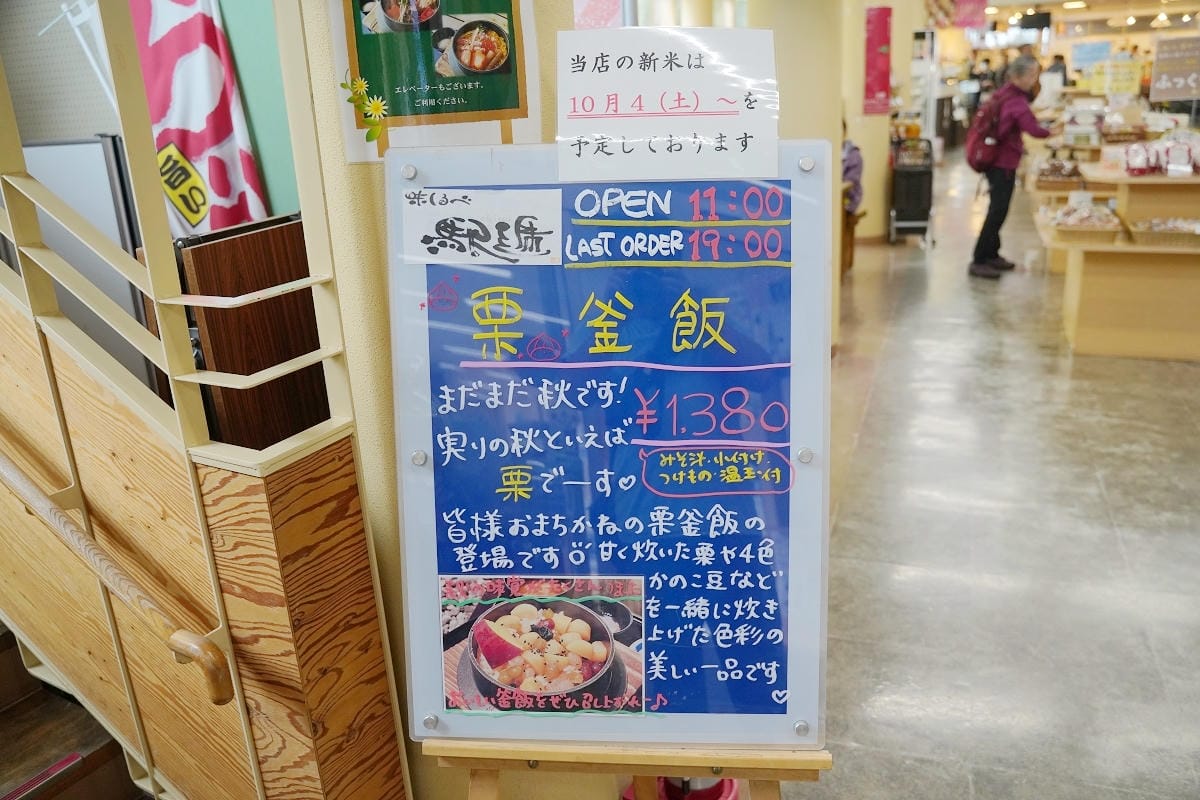 エレベーターもございます。
ご利用ください。
当店の新米は
10月4(土)～を
予定しております
味くるべ
OPEN 11:00
LAST ORDER 19:00
栗釜飯
まだまだ秋です!
実りの秋といえば
栗でーす♡
¥1,380
みそ汁・小付け
つけもの・温玉・付
皆様おまちかねの栗釜飯の
登場です 甘く炊いた栗や4色
かのこ豆など
を一緒に炊き
上げた色彩の
美しい一品です
♡
釜飯をぜひ召し上がれ〜♪